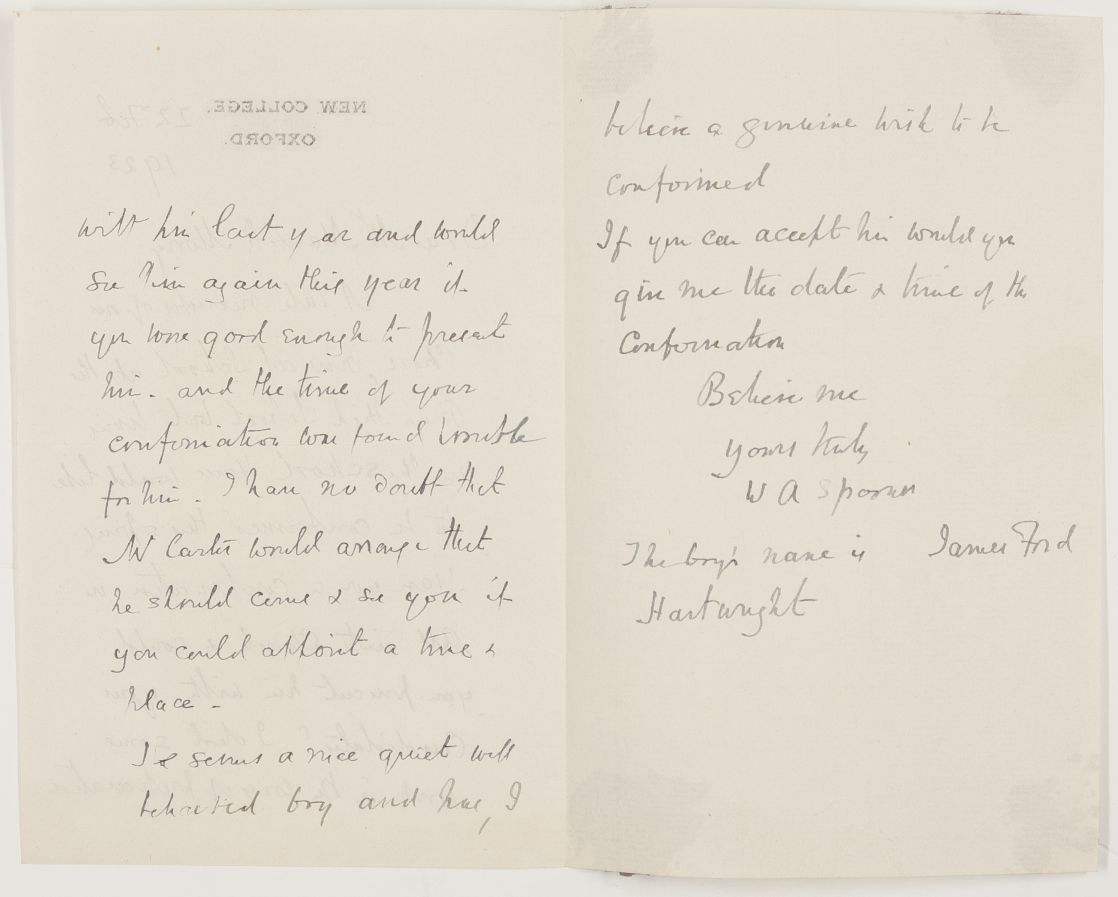 NEW COLLEGE.
OXFORD.
22 Feb
1923
with him last year and would
see him again this year if
you were good enough to present
him. and the time of your
confirmation was found possible
for him. I have no doubt that
Mr Carter would arrange that
he should come & see you if
you could appoint a time &
place -
He seems a nice quiet well
behaved boy and has, I
believe a genuine wish to be
confirmed
If you can accept him would you
give me the date & time of the
Confirmation
Believe me
yours truly
W A Spooner
The boy's name is James Ford
Hartwright